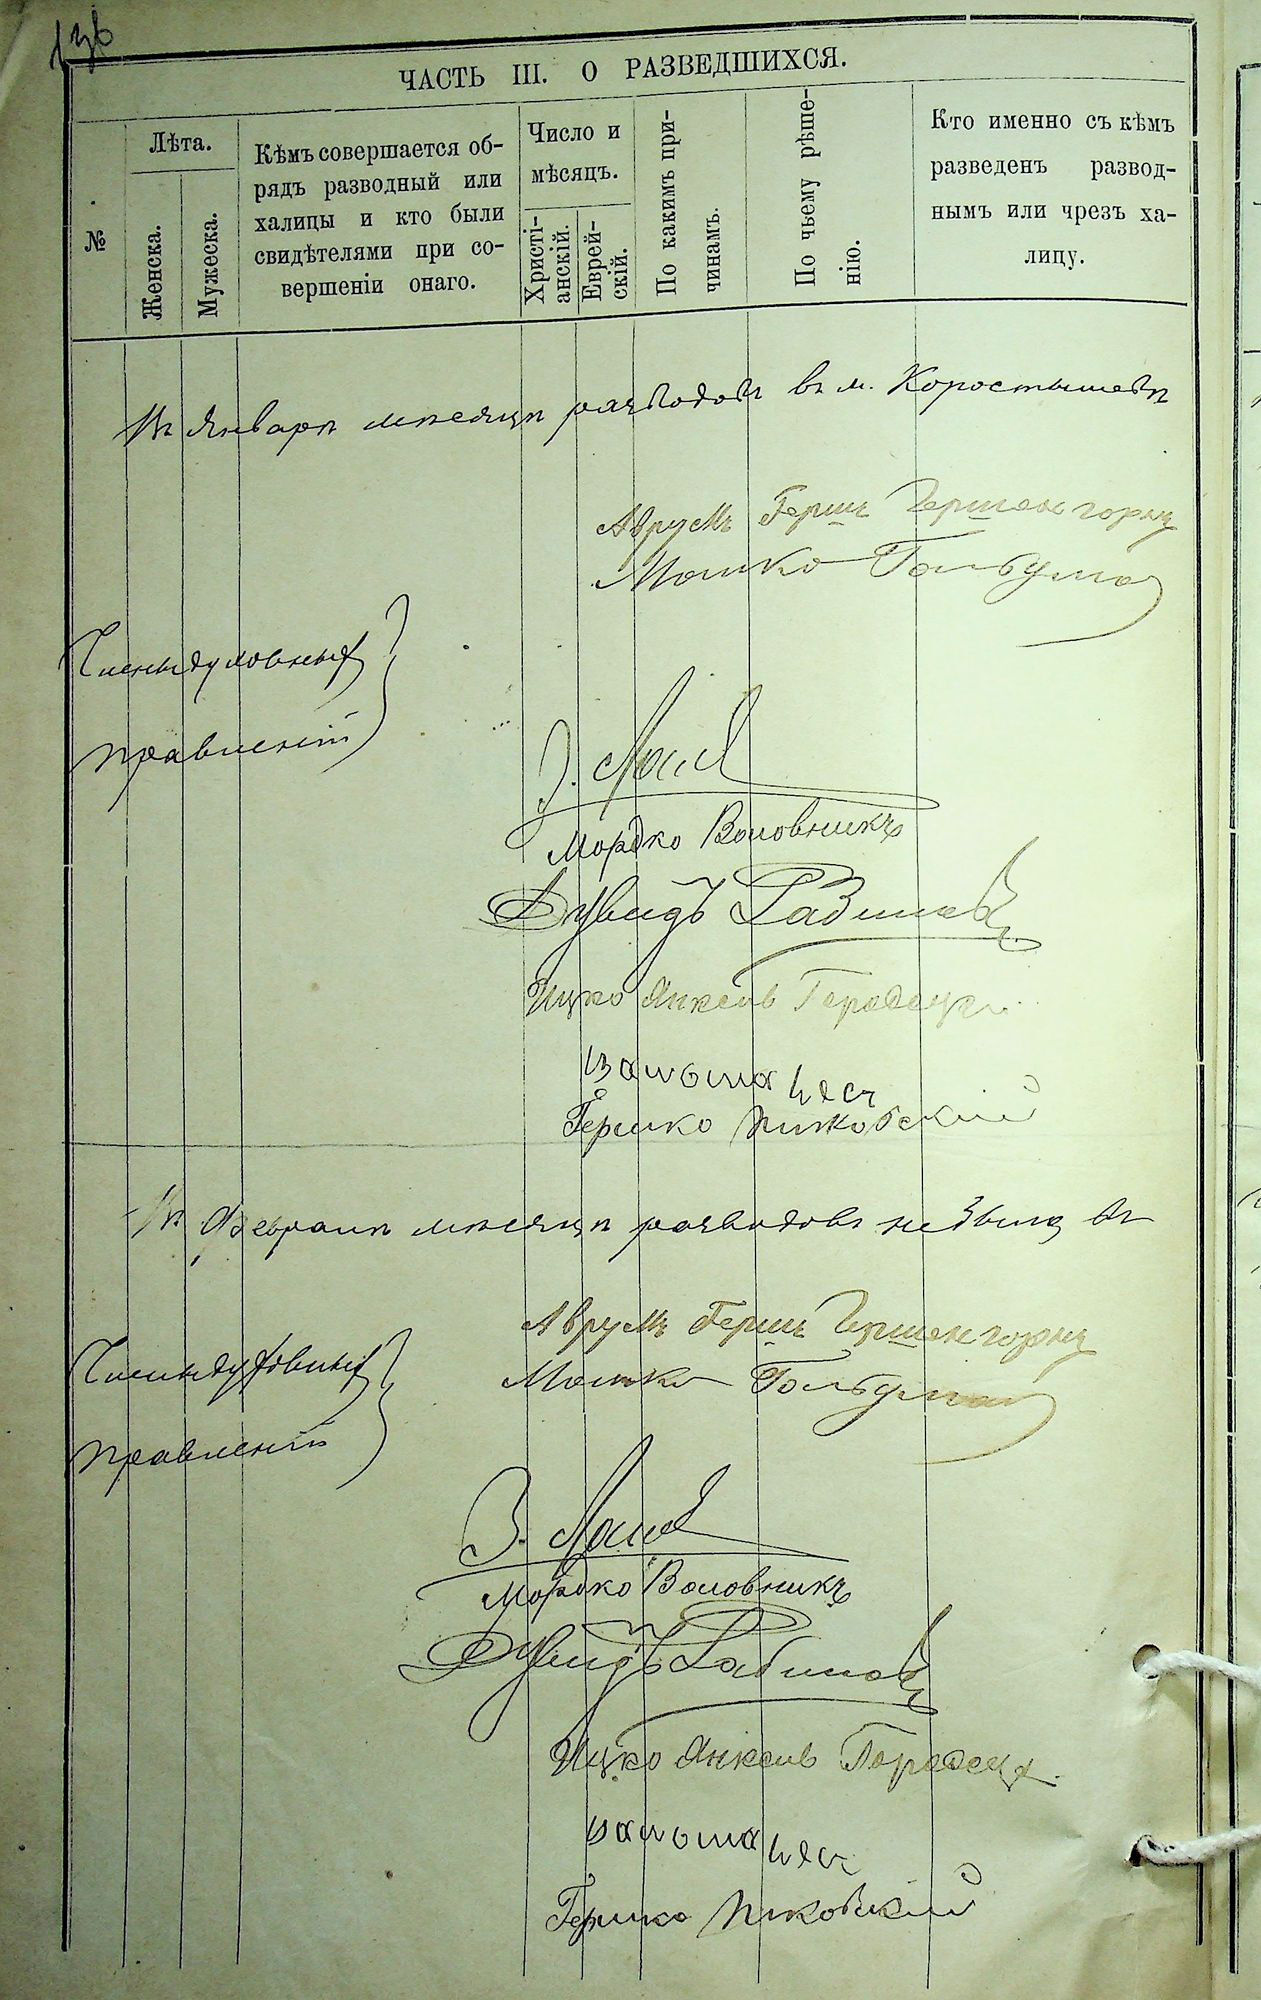 136
ЧАСТЬ III. О РАЗВЕДШИХСЯ.
№
Лѣта.
Женска.
Мужеска.
Кѣмъ совершается об-
рядъ разводный или
халицы и кто были
свидѣтелями при со-
вершеніи онаго.
Число и
мѣсяцъ.
Христі-
анскій.
Еврей-
скій.
По какимъ при-
чинамъ.
По чьему рѣше-
нію.
Кто именно съ кѣмъ
разведенъ развод-
нымъ или чрезъ ха-
лицу.
Въ Январѣ мѣсяцѣ разводовъ въ м. Коростышевѣ
Аврумъ Гершъ Гершенгорнъ
Мошко
Члены духовныхъ
правленій
Мордко Воловникъ
Дувидъ
Ицко Янкель Городецк
Гершко Пиковскій
Въ Февралѣ мѣсяцѣ разводовъ не было въ
Аврумъ Гершъ Гершенгорнъ
Мошко
Члены духовныхъ
правленій
Мордко Воловникъ
Дувидъ
Ицко Янкель Городецк
Гершко Пиковскій